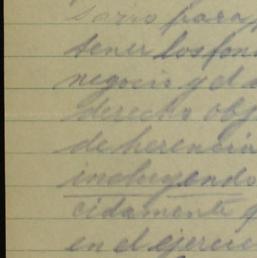 para
tener los fon
negocio y el
derecho obj
de herencia
incluyendo
cidamente q
en el ejerci